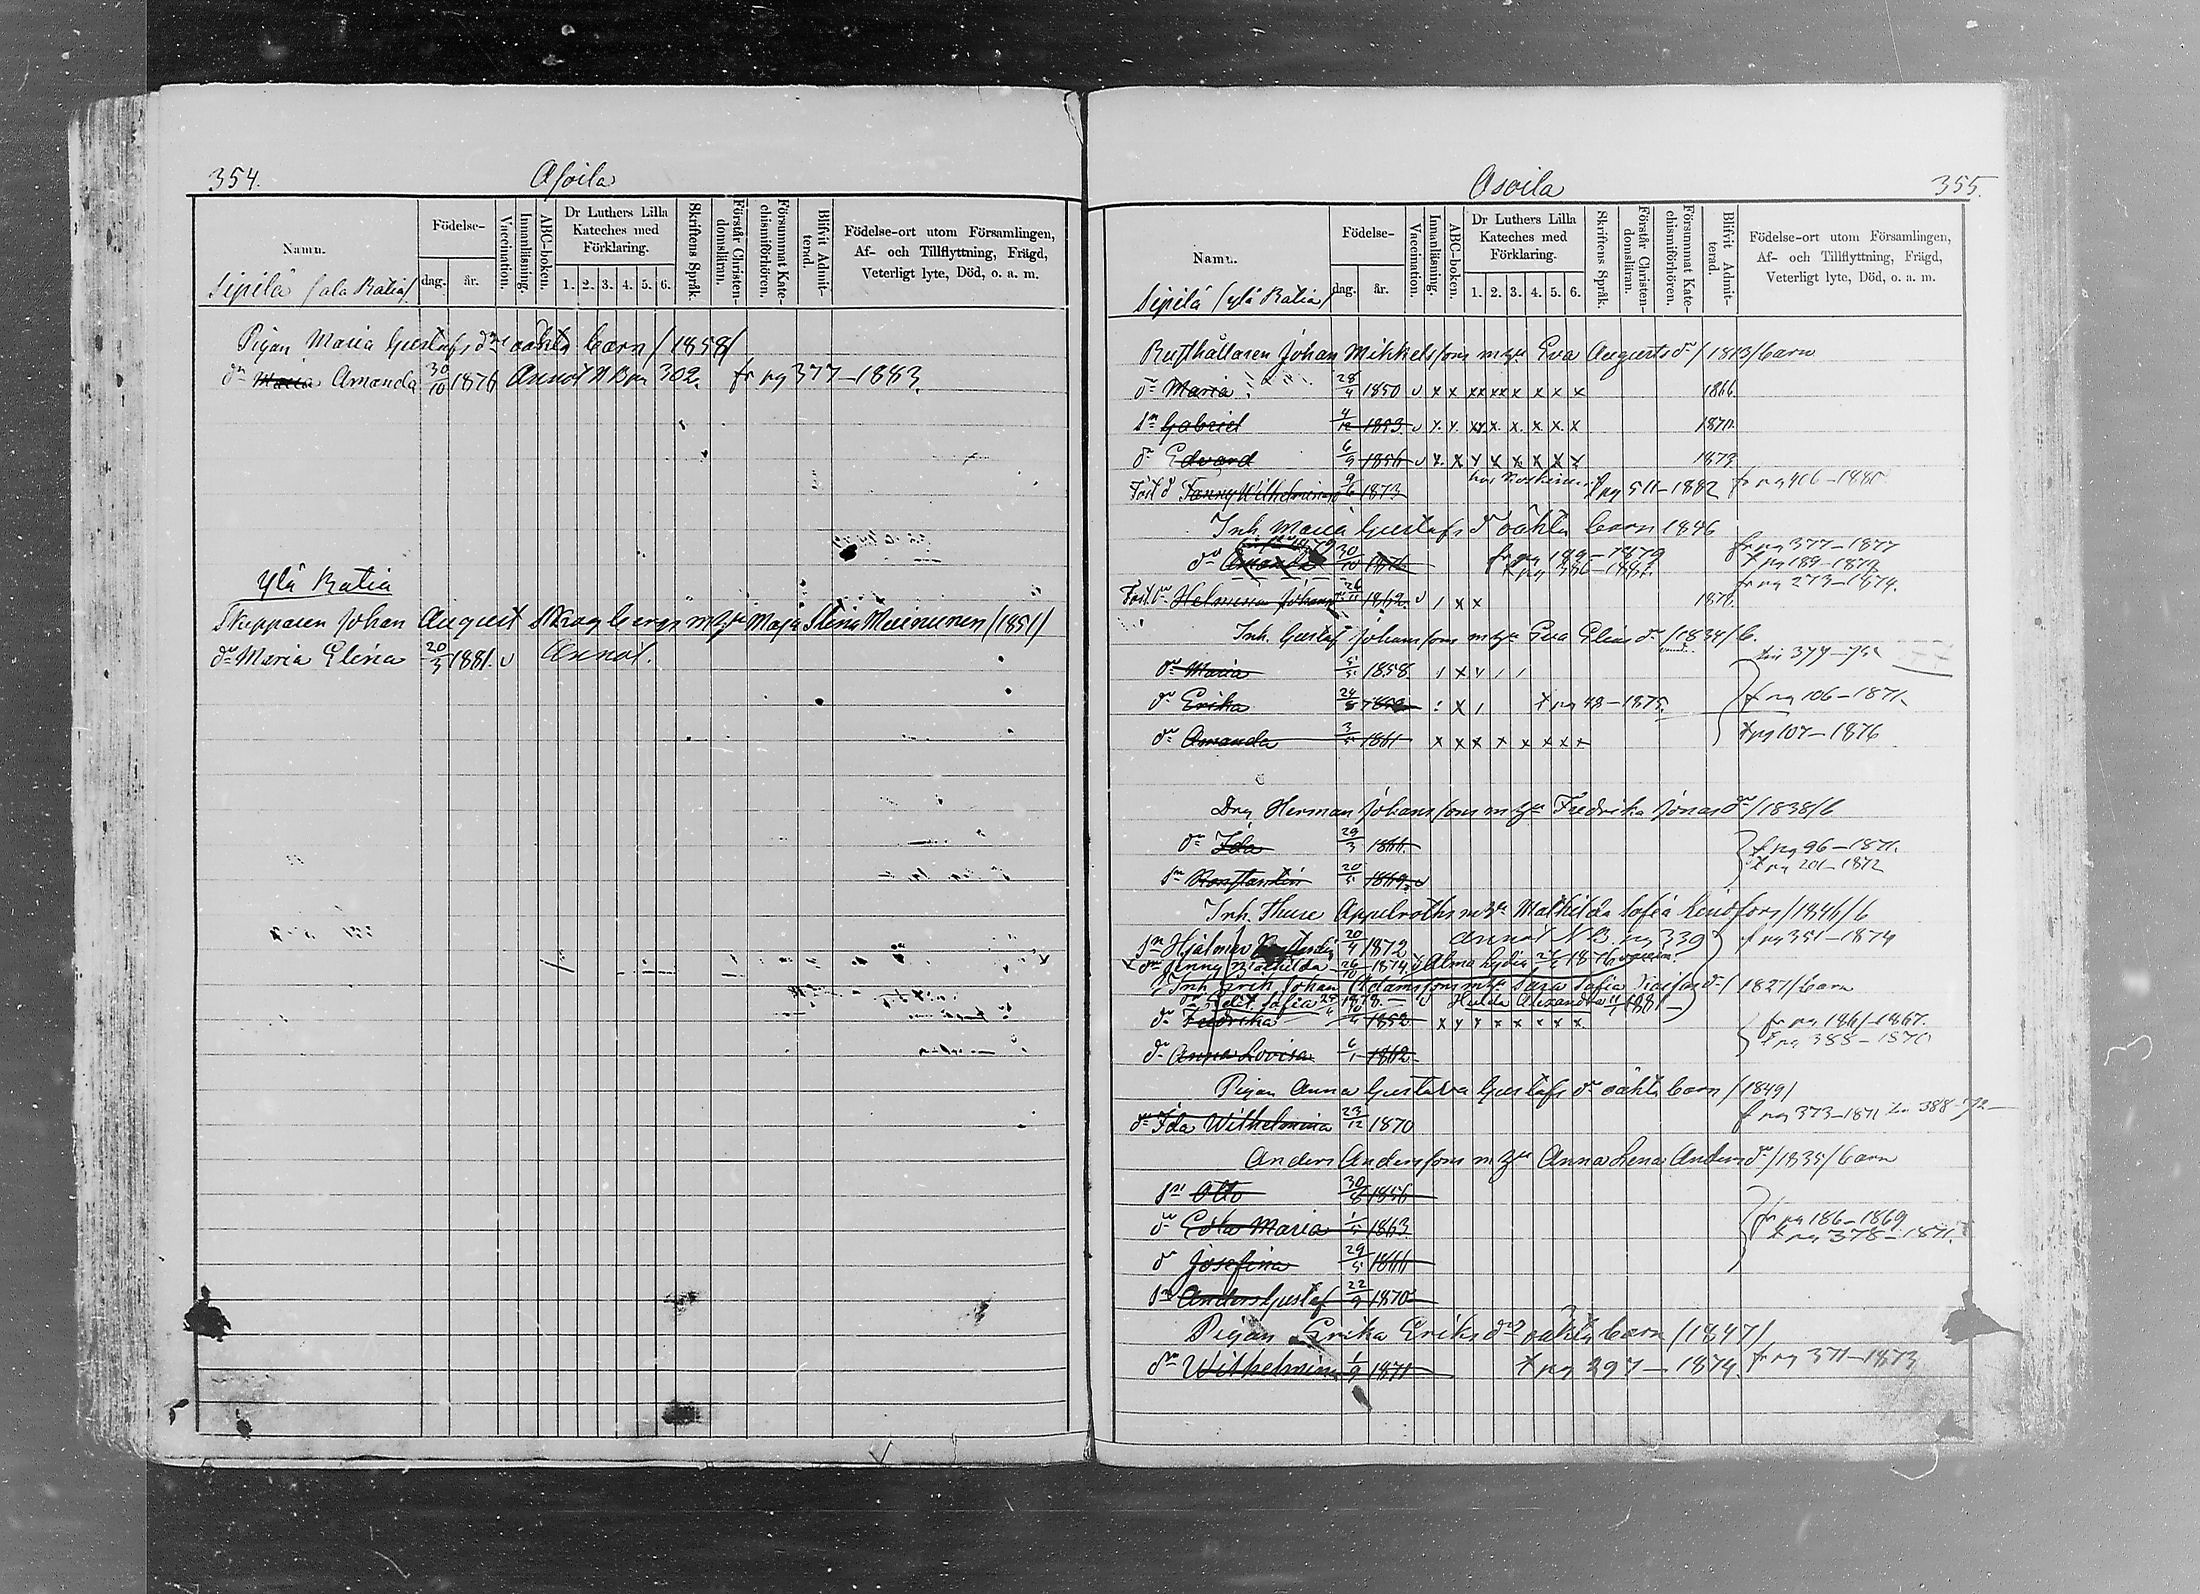 354.
Asoila
Namn.
Födelse-
dag.
år.
Vaccination.
Innanläsning.
ABC-boken.
Dr Luthers Lilla Kateches med Förklaring.
1. 2. 3. 4. 5. 6.
Skriftens Språk.
Förstår Christendomsläran.
Försummat Katechismiförhören.
Blifvit Admitterad.
Födelse-ort utom Församlingen, Af- och Tillflyttning, Frägd, Veterligt lyte, Död, o. a. m.
Sipilä (ala Ratia)
Pigan Maria Gustafs dr oäkta barn (1858)
dr Maria Amanda 30/10 1876 Annot N B pa 302. fr pg 377-1883.
Ylä Ratia
Skepparen Johan August Skogbergs m hu Maja Stina Meinunen (1851)
dr Maria Elina 20/3 1881. v Annot.
Asoila
355.
Namn.
Födelse-
dag.
år.
Vaccination.
Innanläsning.
ABC-boken.
Dr Luthers Lilla Kateches med Förklaring.
1. 2. 3. 4. 5. 6.
Skriftens Språk.
Förstår Christendomsläran.
Försummat Katechismiförhören.
Blifvit Admitterad.
Födelse-ort utom Församlingen, Af- och Tillflyttning, Frägd, Veterligt lyte, Död, o. a. m.
Sipilä (ylä Ratia)
Rusthållaren Johan Mikkelssons m hu Eva Augusts dr (1813) barn
dr Maria 28/4 1850 v x x x x x x x x x x 1866.
sn Gabriel 4/12 1853 v x x x x x x x x x 1870.
Edvard 6/9 1856 v x x x x x x x x 1873
Fost d Fanny Wilhelmina 9/6 1873 t pg 511-1882 fr pg 406-1880
Inh. Maria Gustafs dr oäkta barn 1846
dr Amanda 30/10 1876 fr pg 189-1879 fr pg 377-1877
t pg 189-1879
Fost. dr Helmina Johans dr 26/11 1862 v / x x 1878. fr pg 273-1874.
Inh. Gustaf Johanssons m hu Eva Elias dr (1834) b.
dr Maria 5/5 1858 / x x / /
dr Erika 24/8 x / t pg 48-1875. f pg 106-1871.
dr Amanda 3/5 1861 x x x x x x x x t pg 107-1876
Drg Herman Johanssons m hu Fredrika Jonas dr (1838) b
dr Ida 29/3 1866. f pg 96-1871.
sn Konstantin 20/5 1869. v t pg 201-1872
Inh. Thure Appelroths m hu Mathilda Sofia Lindfors (1846) b
sn Hjalmar 20/4 1872 annot N B. pg 339 f pg 351-1874
dr Jenny Mathilda 26/10 1874 v Alma Lydia 1876
Inh Erik Johan Adamssons m hu Sara Sofia dr (1827) barn
dr Edit Sofia 1878. - v Hulda Alexandra 1881-
dr Fredrika 1852 x x x x x x x x fr pg 186-1867.
t pg 388-1870
dr Anna Lovisa 6/1 1862
Pigan Anna Gustava Gustafs dr oäkta barn (1849)
dr Ida Wilhelmina 23/12 1870 f pg 373-1871 till 388-72-
Anders Anderssons m hu Anna Lena Anders dr (1835) barn
sn Otto 30/8 1856
dr Edla Maria 1/5 1863 fr pg 186-1869
t pg 378-1871.
d Josefina 29/5 1866
sn Anders Gustaf 22/9 1870
Pigan Erika Eriks dr oäkta barn (1847)
dr Wilhelmina 1/9 1871 t pg 297-1874. fr pg 371-1873